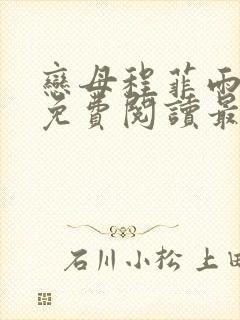 戀母程菲雨
免費閱讀最
石川小松 上田